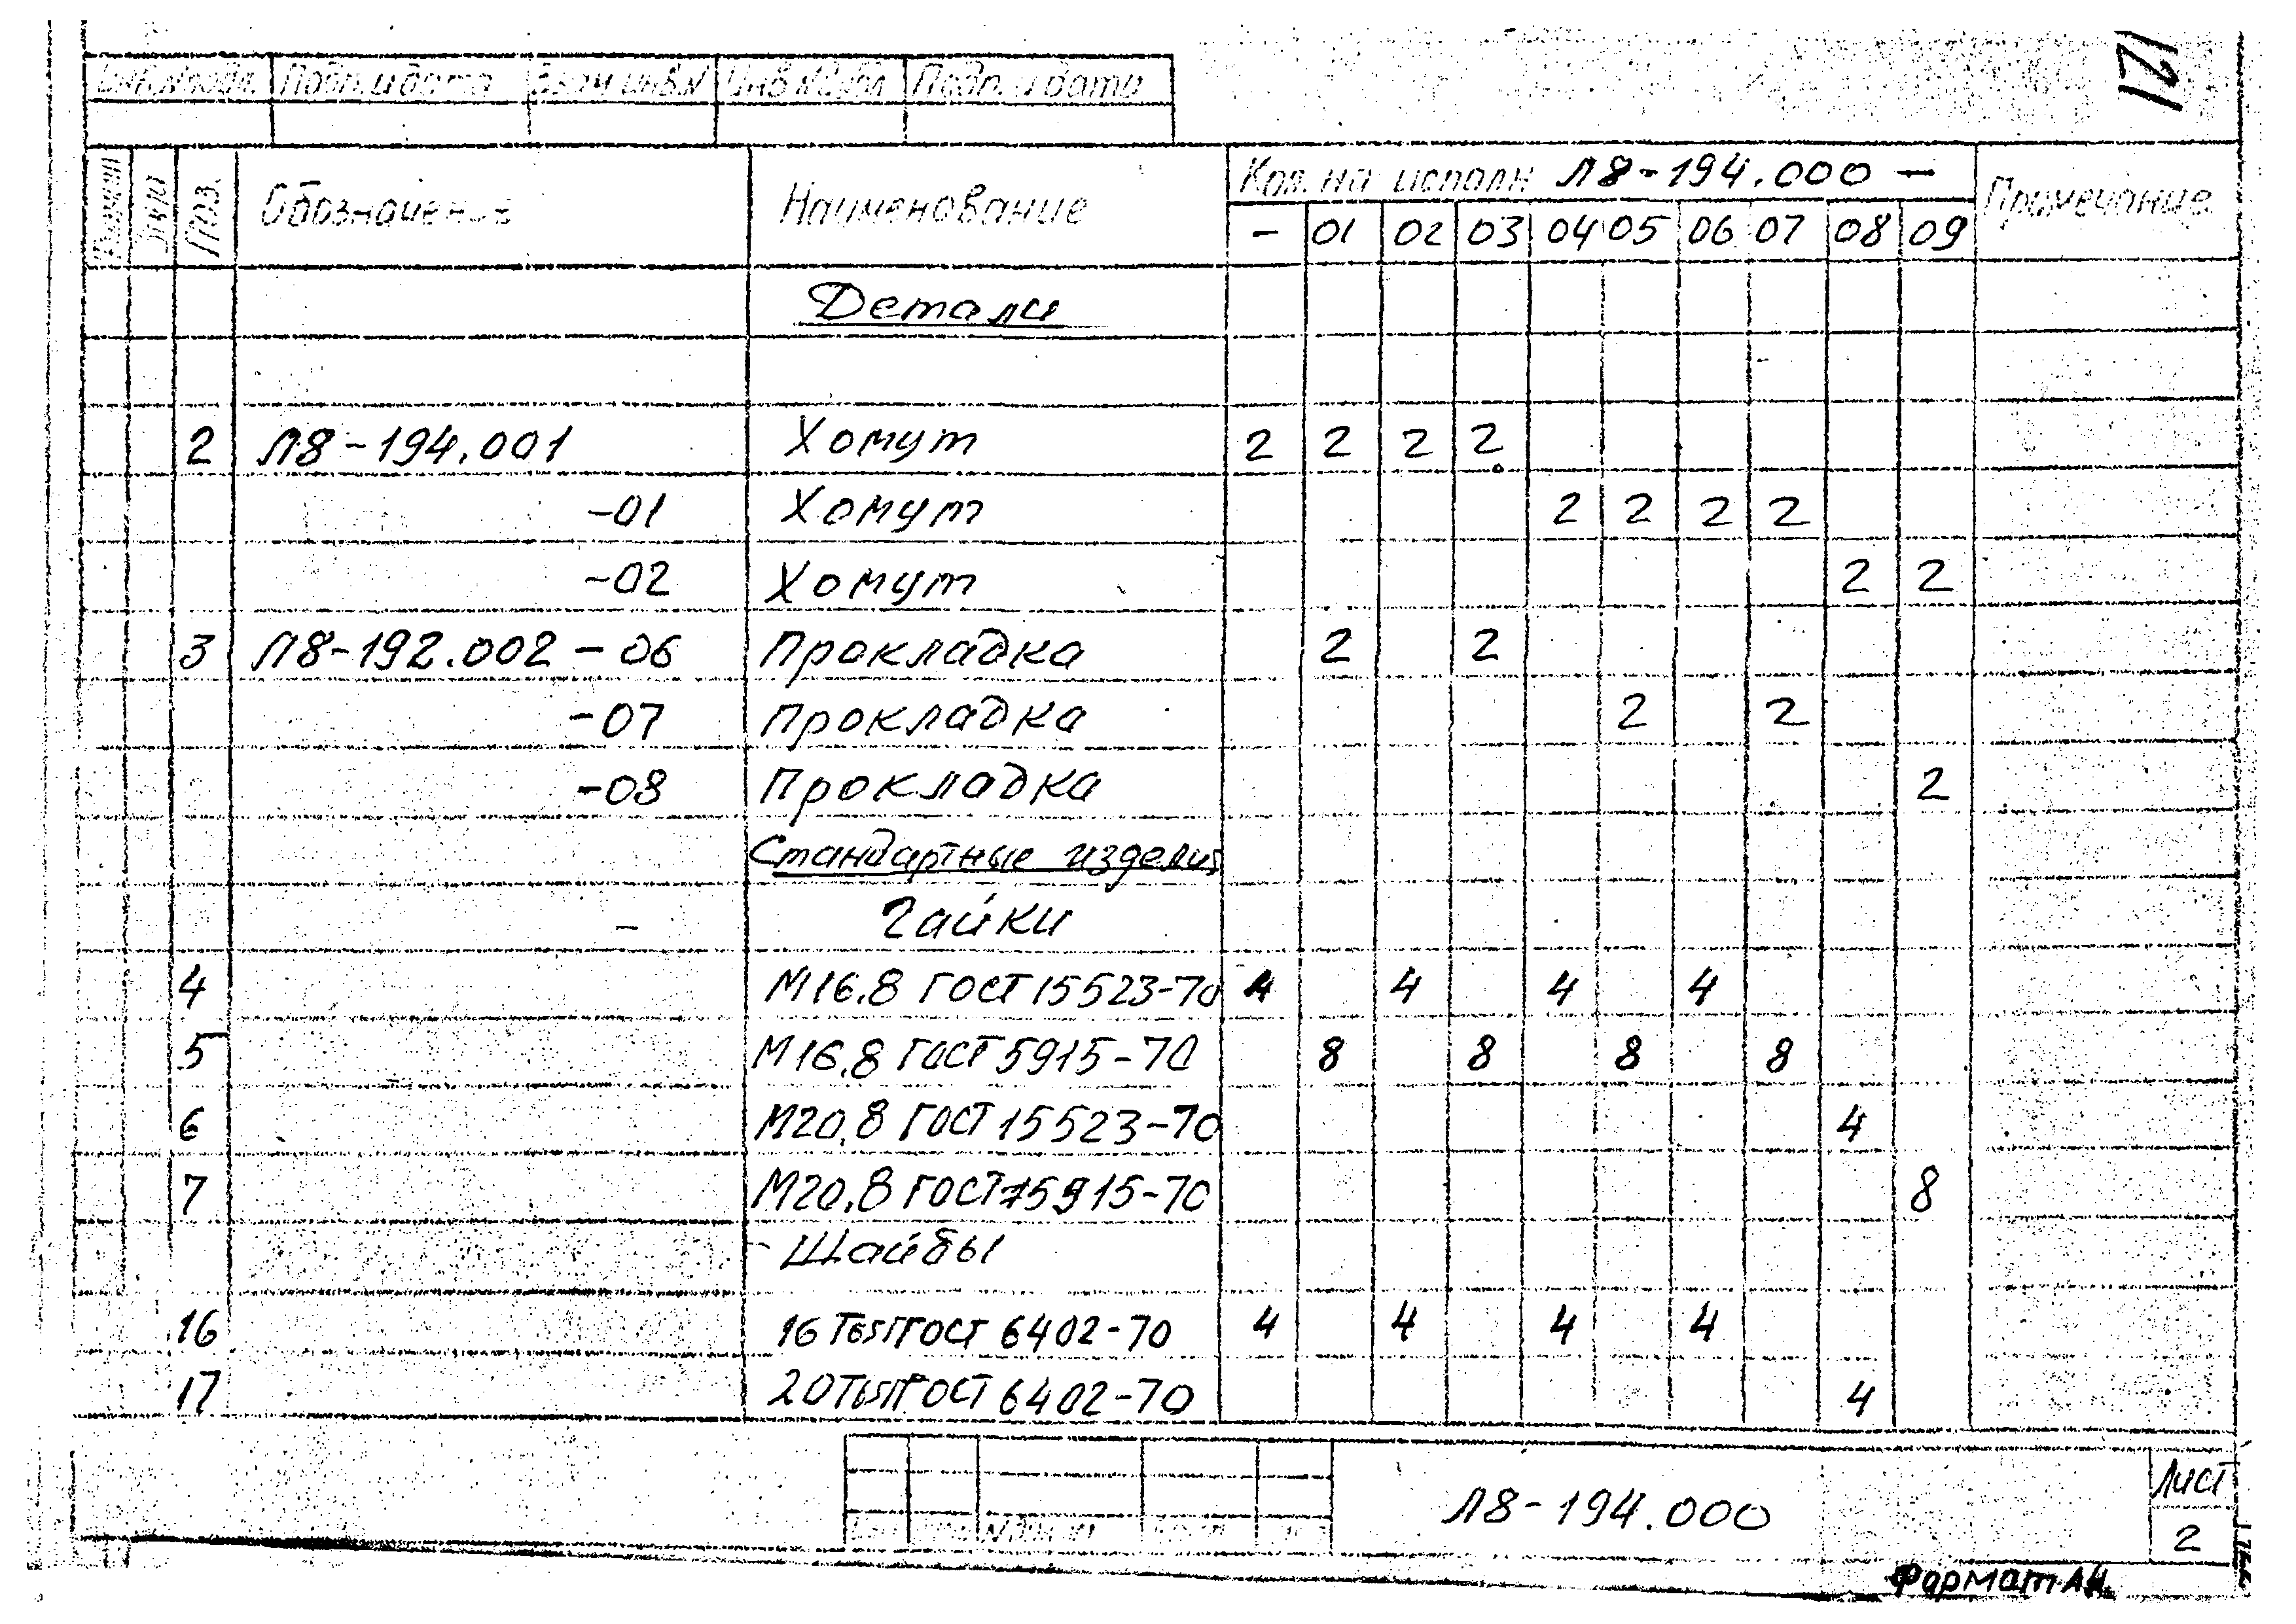 121
Инв.№подл. Подп. и дата Взам инв.№ Инв.№дубл Подп. и дата
Формат Зона Поз. Обозначение Наименование Кол. на исполн Л8-194.000 — Примечание
- 01 02 03 04 05 06 07 08 09
Детали
2 Л8-194.001 Хомут 2 2 2 2
-01 Хомут 2 2 2 2
-02 Хомут 2 2
3 Л8-192.002 - 06 Прокладка 2 2
-07 Прокладка 2 2
-08 Прокладка 2
Стандартные изделия
Гайки
4 М16.8 ГОСТ 15523-70 4 4 4 4
5 М16.8 ГОСТ 5915-70 8 8 8 8
6 М20.8 ГОСТ 15523-70 4
7 М20.8 ГОСТ 5915-70 8
Шайбы
16 16 Т65Г ГОСТ 6402-70 4 4 4 4
17 20Т65Г ГОСТ 6402-70 4
Л8-194.000
Лист
2
Формат А4